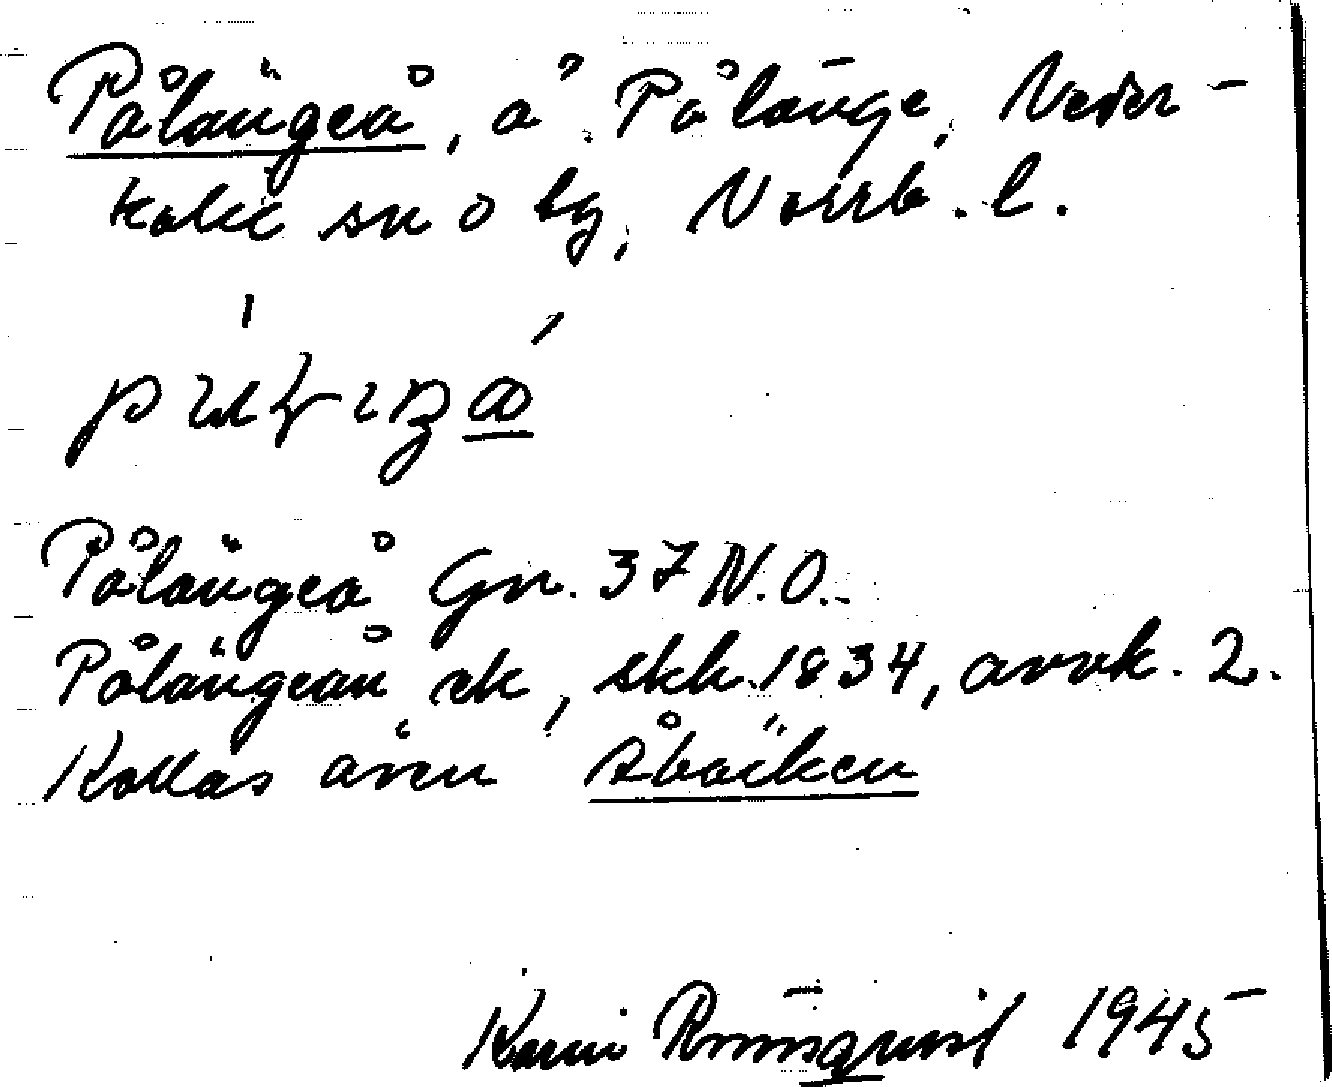 Pålängeå, å, Pålänge, Neder-
kalix sn o tg, Norrb. l.
Pålängeå Gn. 37 N.O.
Pålängeån rk, skh. 1834, avvk. 2.
Kallas även Åbäcken
Karin Rönnquist 1945